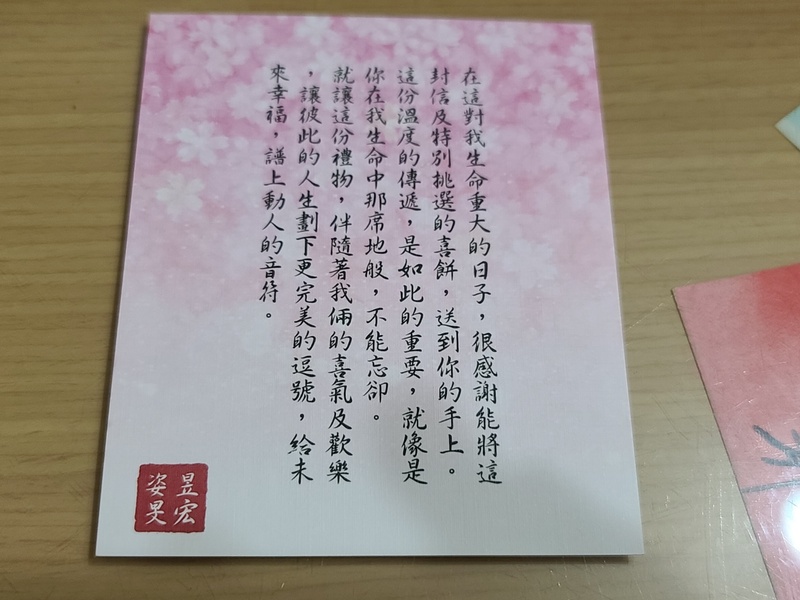 在這對我生命重大的日子，很感謝能將這
封信及特別挑選的喜餅，送到你的手上。
這份溫度的傳遞，是如此的重要，就像是
你在我生命中那席地般，不能忘卻。
就讓這份禮物，伴隨著我倆的喜氣及歡樂
，讓彼此的人生劃下更完美的逗號，給未
來幸福，譜上動人的音符。
昱宏
姿旻